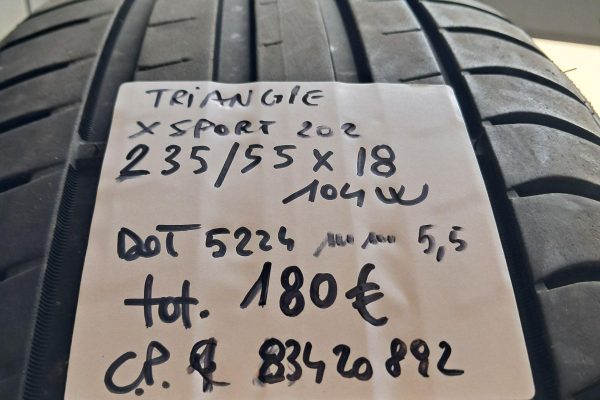 TRiANGlE
X SPORT 202
235/55 x 18
104 W
DOT 5224 mm 5,5
tot. 180€
C.P. 83420892